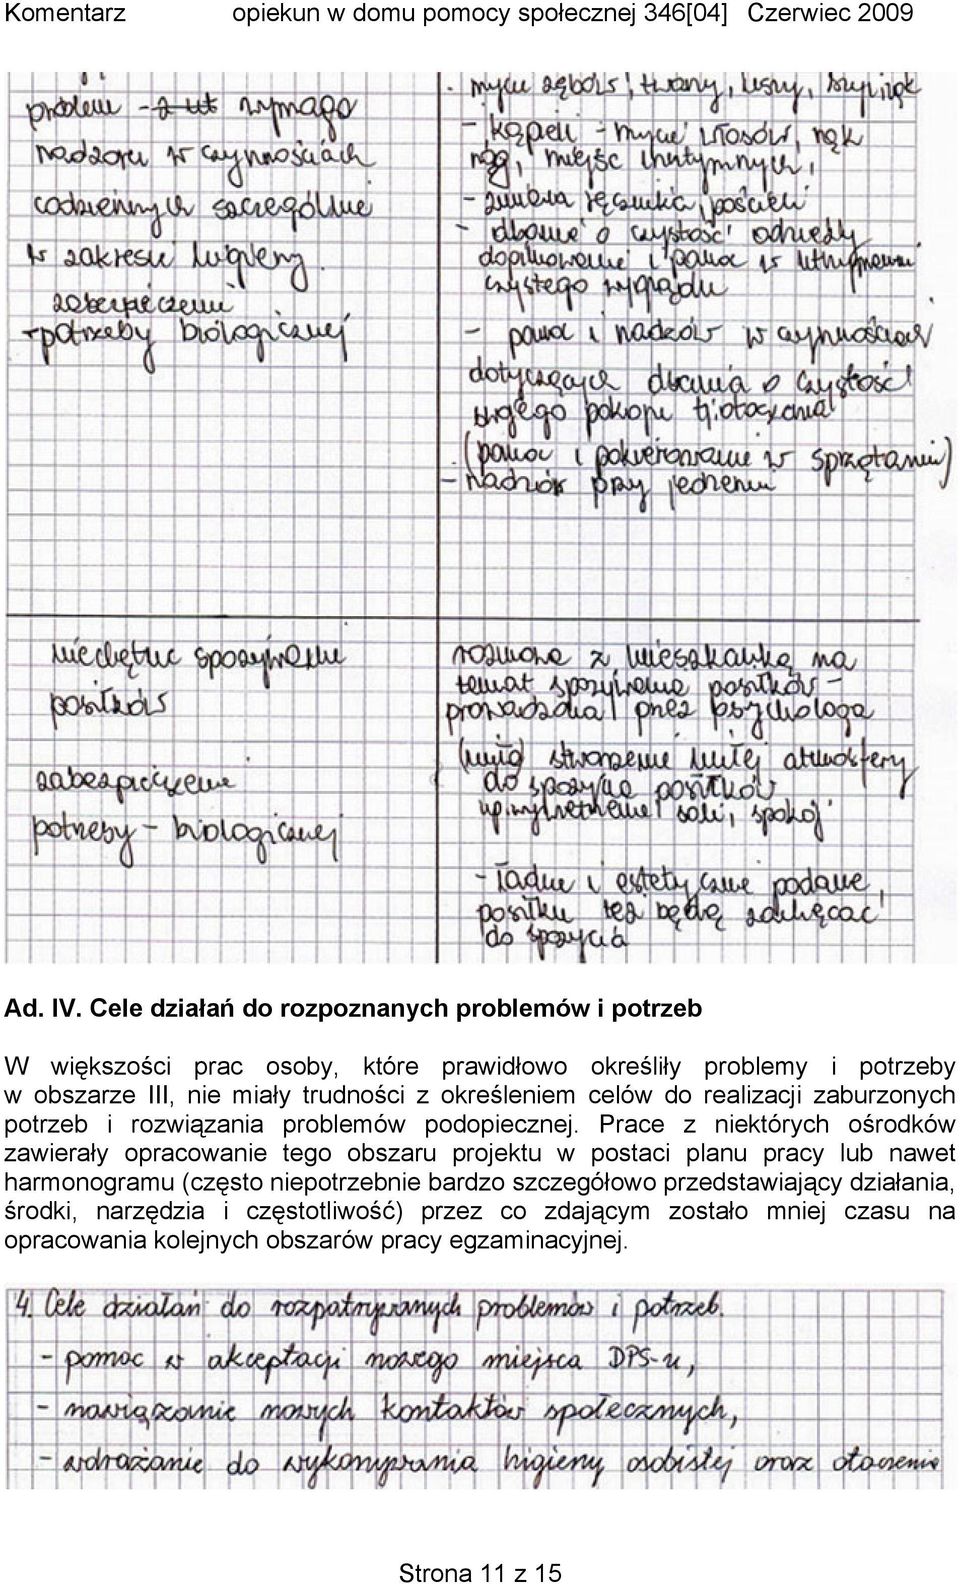 Komentarz opiekun w domu pomocy społecznej 346[04] Czerwiec 2009
problem - wymaga
nadzoru w czynnościach
codziennych szczególnie
w zakresie higieny.
zabezpieczenie
potrzeby biologicznej
- mycie zębów, twarzy, uszu, szyi, rąk
- kąpieli - mycie włosów, rąk
nóg, miejsc intymnych,
- zmiana ręcznika, pościeli
- dbanie o czystość odzieży
dopilnowanie i pomoc w utrzymaniu
czystego wyglądu
- pomoc i nadzór w czynnościach
dotyczących dbania o czystość
swojego pokoju i otoczenia
(pomoc i pokierowanie w sprzątaniu)
- nadzór przy jedzeniu
niechętne spożywanie
posiłków
zabezpieczenie
potrzeby - biologicznej
rozmowa z mieszkanką na
temat spożywania posiłków -
prowadzona przez psychologa
stworzenie miłej atmosfery
do spożycia posiłków
soli, spokój
- ładne i estetyczne podanie
posiłku też będą zachęcać
do spożycia
Ad. IV. Cele działań do rozpoznanych problemów i potrzeb
W większości prac osoby, które prawidłowo określiły problemy i potrzeby
w obszarze III, nie miały trudności z określeniem celów do realizacji zaburzonych
potrzeb i rozwiązania problemów podopiecznej. Prace z niektórych ośrodków
zawierały opracowanie tego obszaru projektu w postaci planu pracy lub nawet
harmonogramu (często niepotrzebnie bardzo szczegółowo przedstawiający działania,
środki, narzędzia i częstotliwość) przez co zdającym zostało mniej czasu na
opracowania kolejnych obszarów pracy egzaminacyjnej.
4. Cele działań do rozpatrywanych problemów i potrzeb.
- pomoc w akceptacji nowego miejsca DPS-u,
- nawiązanie nowych kontaktów społecznych,
- wdrażanie do wykonywania higieny osobistej oraz otoczenia
Strona 11 z 15